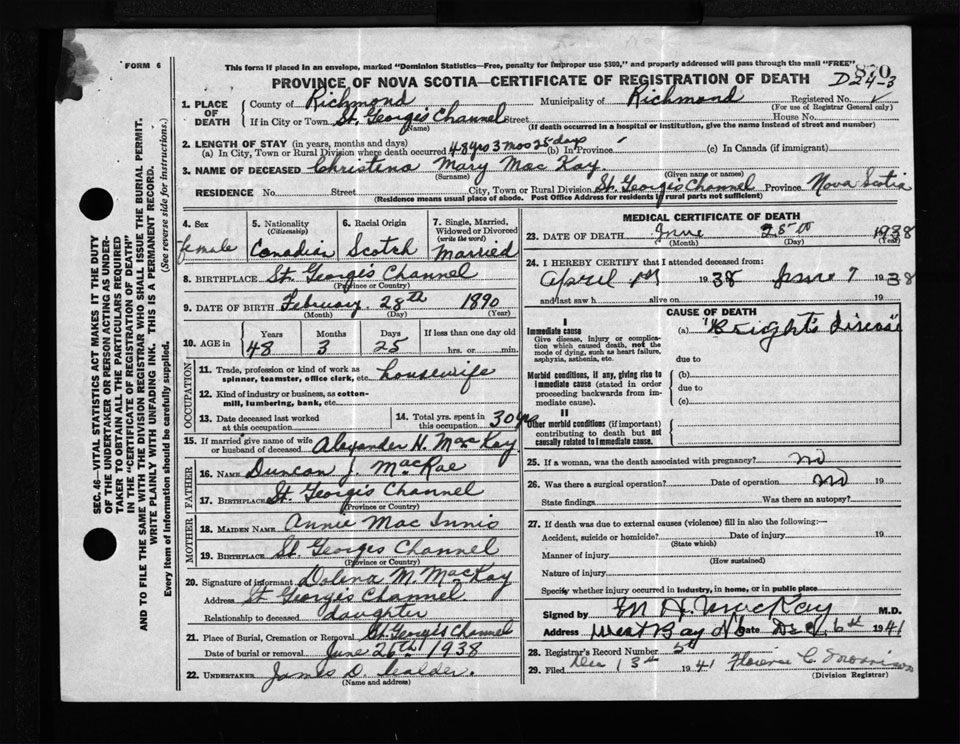 FORM 6
This form if placed in an envelope, marked "Dominion Statistics—Free, penalty for improper use $300," and properly addressed will pass through the mail "FREE"
870
PROVINCE OF NOVA SCOTIA—CERTIFICATE OF REGISTRATION OF DEATH
1. PLACE OF DEATH
County of Richmond Municipality of Richmond Registered No.
(For use of Registrar General only)
If in City or Town St. George's Channel Street House No.
(Name) (If death occurred in a hospital or institution, give the name instead of street and number)
2. LENGTH OF STAY (in years, months and days)
(a) In City, Town or Rural Division where death occurred 48 yrs 3 mos 25 days (b) In Province (c) In Canada (if immigrant)
3. NAME OF DECEASED Christena Mary MacKay
(Surname) (Given name or names)
RESIDENCE No. Street City, Town or Rural Division St. George's Channel Province Nova Scotia
(Residence means usual place of abode. Post Office Address for residents in rural parts not sufficient)
4. Sex
female
5. Nationality
(Citizenship)
Canadian
6. Racial Origin
Scotch
7. Single, Married, Widowed or Divorced
(write the word)
Married
8. BIRTHPLACE St. George's Channel
(Province or Country)
9. DATE OF BIRTH February 28th 1890
(Month) (Day) (Year)
10. AGE in
Years Months Days If less than one day old
48 3 25 hrs. or min.
OCCUPATION
11. Trade, profession or kind of work as spinner, teamster, office clerk, etc. housewife
12. Kind of industry or business, as cotton-mill, lumbering, bank, etc.
13. Date deceased last worked at this occupation
14. Total yrs. spent in this occupation 30 yrs
15. If married give name of wife or husband of deceased Alexander H. MacKay
FATHER
16. NAME Duncan J. MacRae
17. BIRTHPLACE St. George's Channel
(Province or Country)
MOTHER
18. MAIDEN NAME Annie MacInnis
19. BIRTHPLACE St. George's Channel
(Province or Country)
20. Signature of informant Dolena M. MacKay
Address St. George's Channel
Relationship to deceased daughter
21. Place of Burial, Cremation or Removal St. George's Channel
Date of burial or removal June 26th 1938
22. UNDERTAKER James D.
(Name and address)
MEDICAL CERTIFICATE OF DEATH
23. DATE OF DEATH June 25th 1938
(Month) (Day) (Year)
24. I HEREBY CERTIFY that I attended deceased from:
April 1st 1938 June 7 1938
and last saw h alive on 19
CAUSE OF DEATH
I
Immediate cause
Give disease, injury or complication which caused death, not the mode of dying, such as heart failure, asphyxia, asthenia, etc.
(a) "Bright's Disease"
due to
Morbid conditions, if any, giving rise to immediate cause (stated in order proceeding backwards from immediate cause).
(b)
due to
(c)
II
Other morbid conditions (if important) contributing to death but not causally related to immediate cause.
25. If a woman, was the death associated with pregnancy? no
26. Was there a surgical operation? Date of operation no 19
State findings Was there an autopsy?
27. If death was due to external causes (violence) fill in also the following:—
Accident, suicide or homicide? Date of injury 19
(State which)
Manner of injury
(How sustained)
Nature of injury
Specify whether injury occurred in industry, in home, or in public place
Signed by MacKay M.D.
Address West Bay Date Dec. 6th 1941
28. Registrar's Record Number
29. Filed Dec 13th 1941 Florence C. Morrison
(Division Registrar)
SEC. 46—VITAL STATISTICS ACT MAKES IT THE DUTY
OF THE UNDERTAKER OR PERSON ACTING AS UNDER-
TAKER TO OBTAIN ALL THE PARTICULARS REQUIRED
IN THE "CERTIFICATE OF REGISTRATION OF DEATH"
AND TO FILE THE SAME WITH THE DIVISION REGISTRAR WHO SHALL ISSUE THE BURIAL PERMIT.
WRITE PLAINLY WITH UNFADING INK. THIS IS A PERMANENT RECORD.
Every item of information should be carefully supplied. (See reverse side for instructions.)